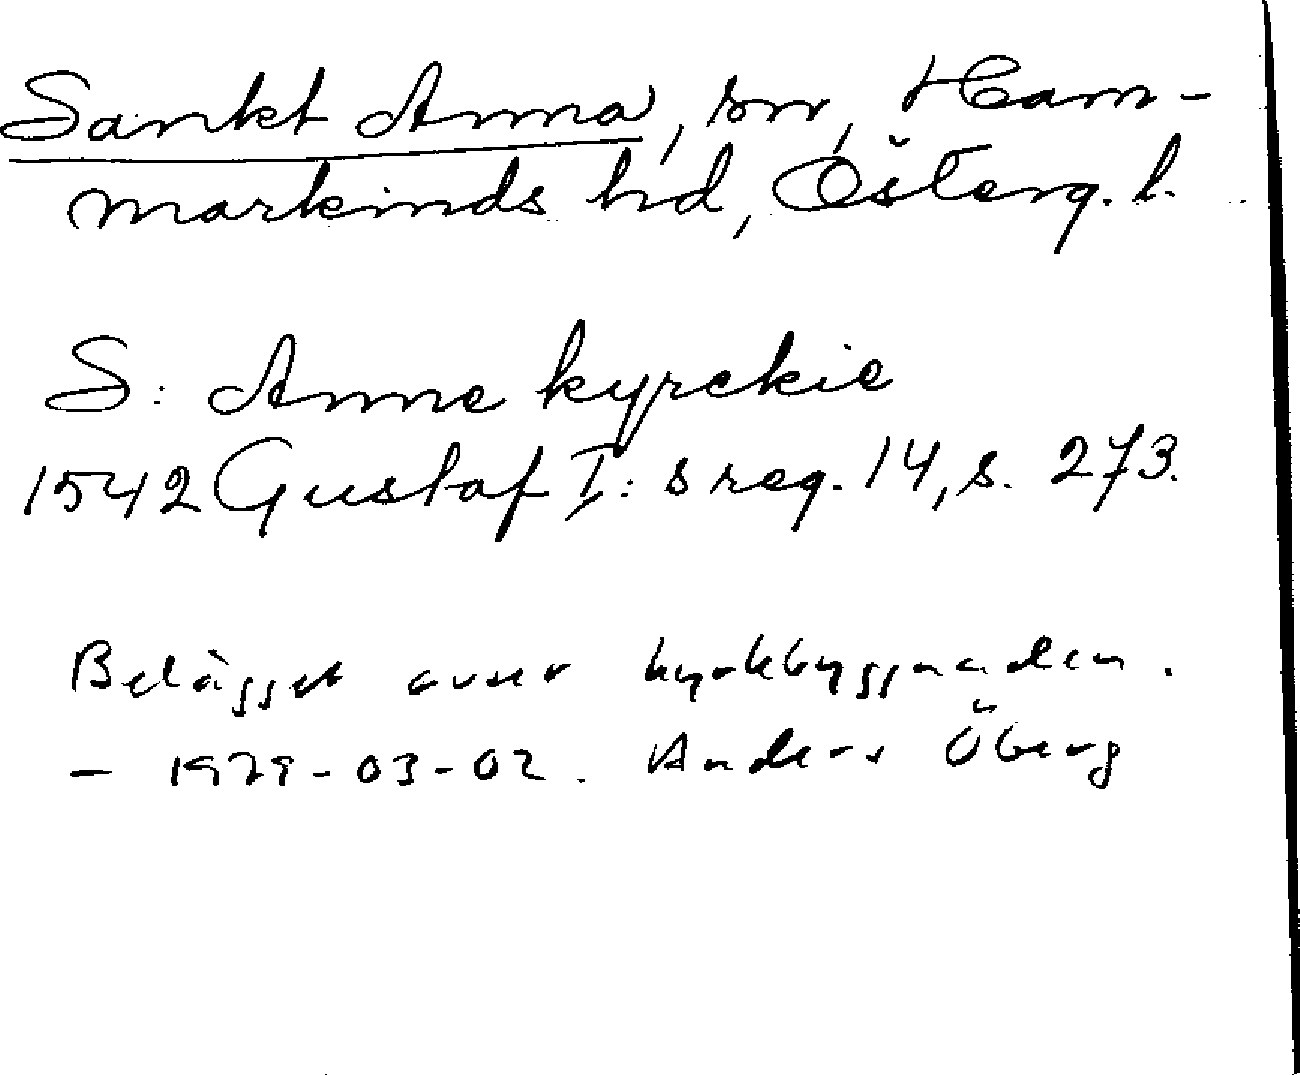 Sankt Anna, sn, Ham-
markinds hd, Österg. l.
S: Anne kyrckie
1542 Gustaf I:s reg. 14, s. 273.
Belägget avser kyrkbyggnaden.
– 1979-03-02. Anders Öberg